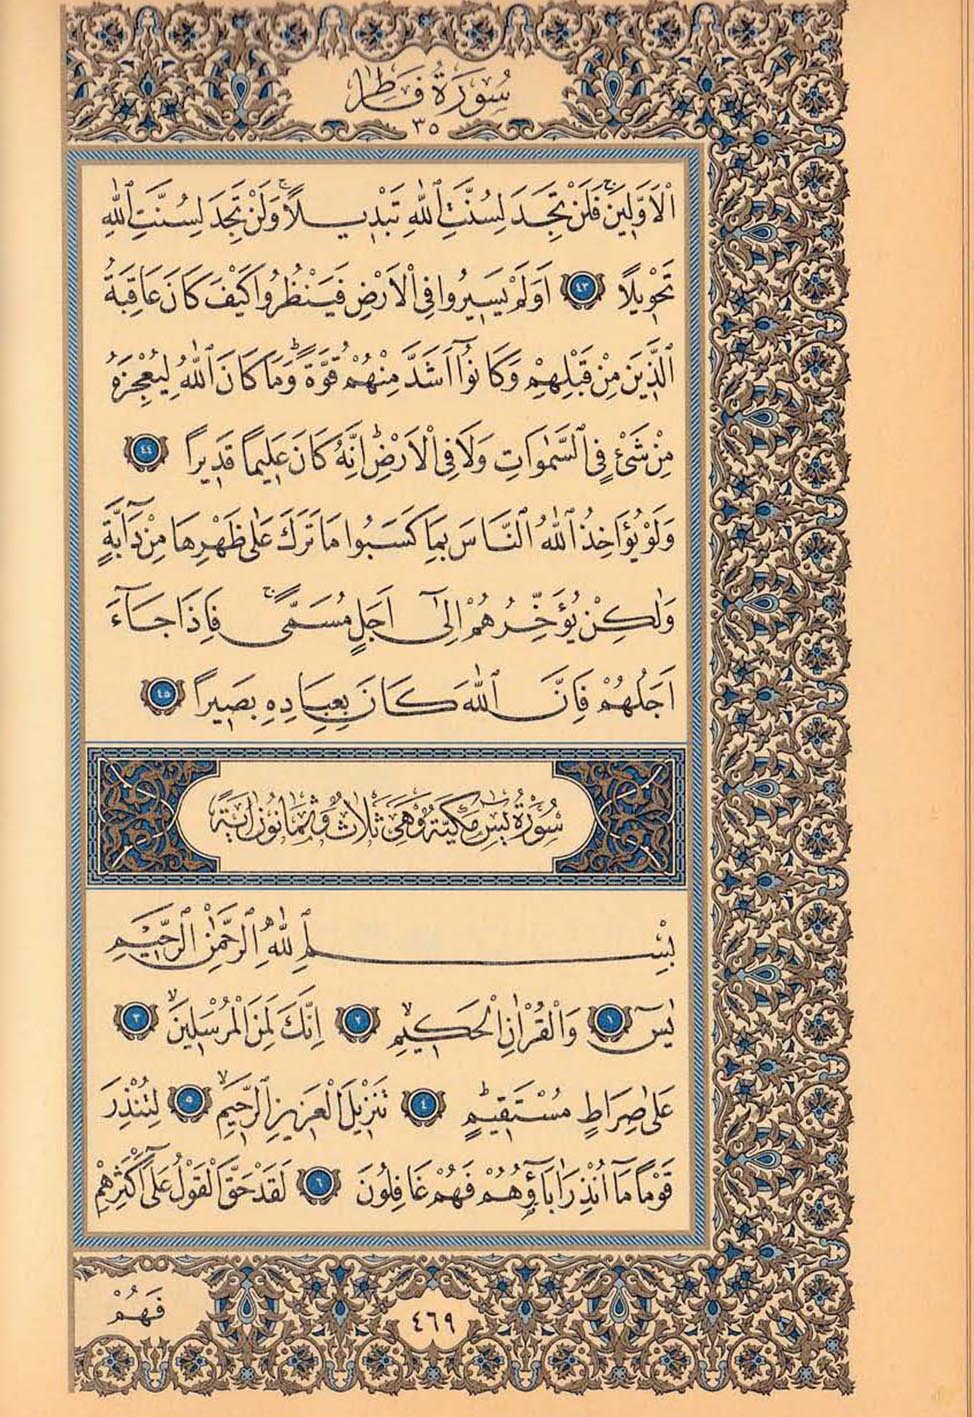 سُورَةُ فَاطِر
٣٥
الْاَوَّل۪ينَۚ فَلَنْ تَجِدَ لِسُنَّتِ اللّٰهِ تَبْد۪يلًاۚ وَلَنْ تَجِدَ لِسُنَّتِ اللّٰهِ
تَحْو۪يلًا ٤٣ اَوَلَمْ يَس۪يرُوا فِي الْاَرْضِ فَيَنْظُرُوا كَيْفَ كَانَ عَاقِبَةُ
الَّذ۪ينَ مِنْ قَبْلِهِمْ وَكَانُٓوا اَشَدَّ مِنْهُمْ قُوَّةًۜ وَمَا كَانَ اللّٰهُ لِيُعْجِزَهُ
مِنْ شَيْءٍ فِي السَّمٰوَاتِ وَلَا فِي الْاَرْضِۜ اِنَّهُ كَانَ عَل۪يمًا قَد۪يرًا ٤٤
وَلَوْ يُؤَاخِذُ اللّٰهُ النَّاسَ بِمَا كَسَبُوا مَا تَرَكَ عَلٰى ظَهْرِهَا مِنْ دَٓابَّةٍ
وَلٰكِنْ يُؤَخِّرُهُمْ اِلٰٓى اَجَلٍ مُسَمًّىۚ فَاِذَا جَٓاءَ
اَجَلُهُمْ فَاِنَّ اللّٰهَ كَانَ بِعِبَادِهِ بَص۪يرًا ٤٥
سُورَةُ يٰسٓ مَكِّيَّةٌ وَهِيَ ثَلَاثٌ وَثَمَانُونَ اٰيَةً
بِسْمِ اللّٰهِ الرَّحْمٰنِ الرَّح۪يمِ
يٰسٓ ١ وَالْقُرْاٰنِ الْحَك۪يمِۙ ٢ اِنَّكَ لَمِنَ الْمُرْسَل۪ينَۙ ٣
عَلٰى صِرَاطٍ مُسْتَق۪يمٍۜ ٤ تَنْز۪يلَ الْعَز۪يزِ الرَّح۪يمِۙ ٥ لِتُنْذِرَ
قَوْمًا مَٓا اُنْذِرَ اٰبَٓاؤُ۬هُمْ فَهُمْ غَافِلُونَ ٦ لَقَدْ حَقَّ الْقَوْلُ عَلٰٓى اَكْثَرِهِمْ
فَهُمْ
٤٦٩